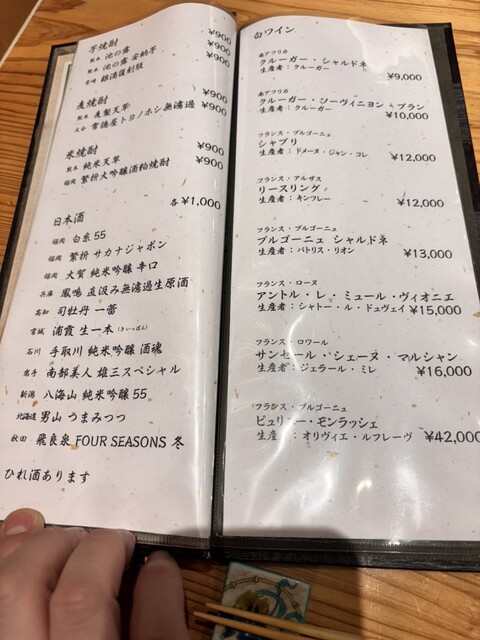 芋焼酎
熊本 池の露 ¥900
熊本 池の露 安納芋 ¥900
宮崎 銀滴復刻版 ¥900
麦焼酎 ¥900
熊本 麦製天草 ¥900
大分 常徳屋トヨノホシ無濾過 ¥900
米焼酎
熊本 純米天草 ¥900
福岡 繁桝大吟醸酒粕焼酎 ¥900
日本酒 各¥1,000
福岡 白糸55
福岡 繁桝 サカナジャポン
福岡 大賀 純米吟醸 辛口
兵庫 鳳鳴 直汲み無濾過生原酒
高知 司牡丹 一蕾
宮城 浦霞 生一本(きいっぽん)
石川 手取川 純米吟醸 酒魂
岩手 南部美人 雄三スペシャル
新潟 八海山 純米吟醸 55
北海道 男山 うまみつつ
秋田 飛良泉 FOUR SEASONS 冬
ひれ酒あります
白ワイン
南アフリカ
クルーガー・シャルドネ
生産者:クルーガー ¥9,000
南アフリカ
クルーガー・ソーヴィニヨン ブラン
生産者:クルーガー ¥10,000
フランス・ブルゴーニュ
シャブリ
生産者:ドメーヌ・ジャン・コレ ¥12,000
フランス・アルザス
リースリング
生産者:キンツレー ¥12,000
フランス・ブルゴーニュ
ブルゴーニュ シャルドネ
生産者:パトリス・リオン ¥13,000
フランス・ローヌ
アントル・レ・ミュール・ヴィオニエ
生産者:シャトー・ル・ドュヴェイ ¥15,000
フランス・ロワール
サンセール・シェーヌ・マルシャン
生産者:ジェラール・ミレ ¥16,000
フランス・ブルゴーニュ
ピュリニー・モンラッシェ
生産者:オリヴィエ・ルフレーヴ ¥42,000